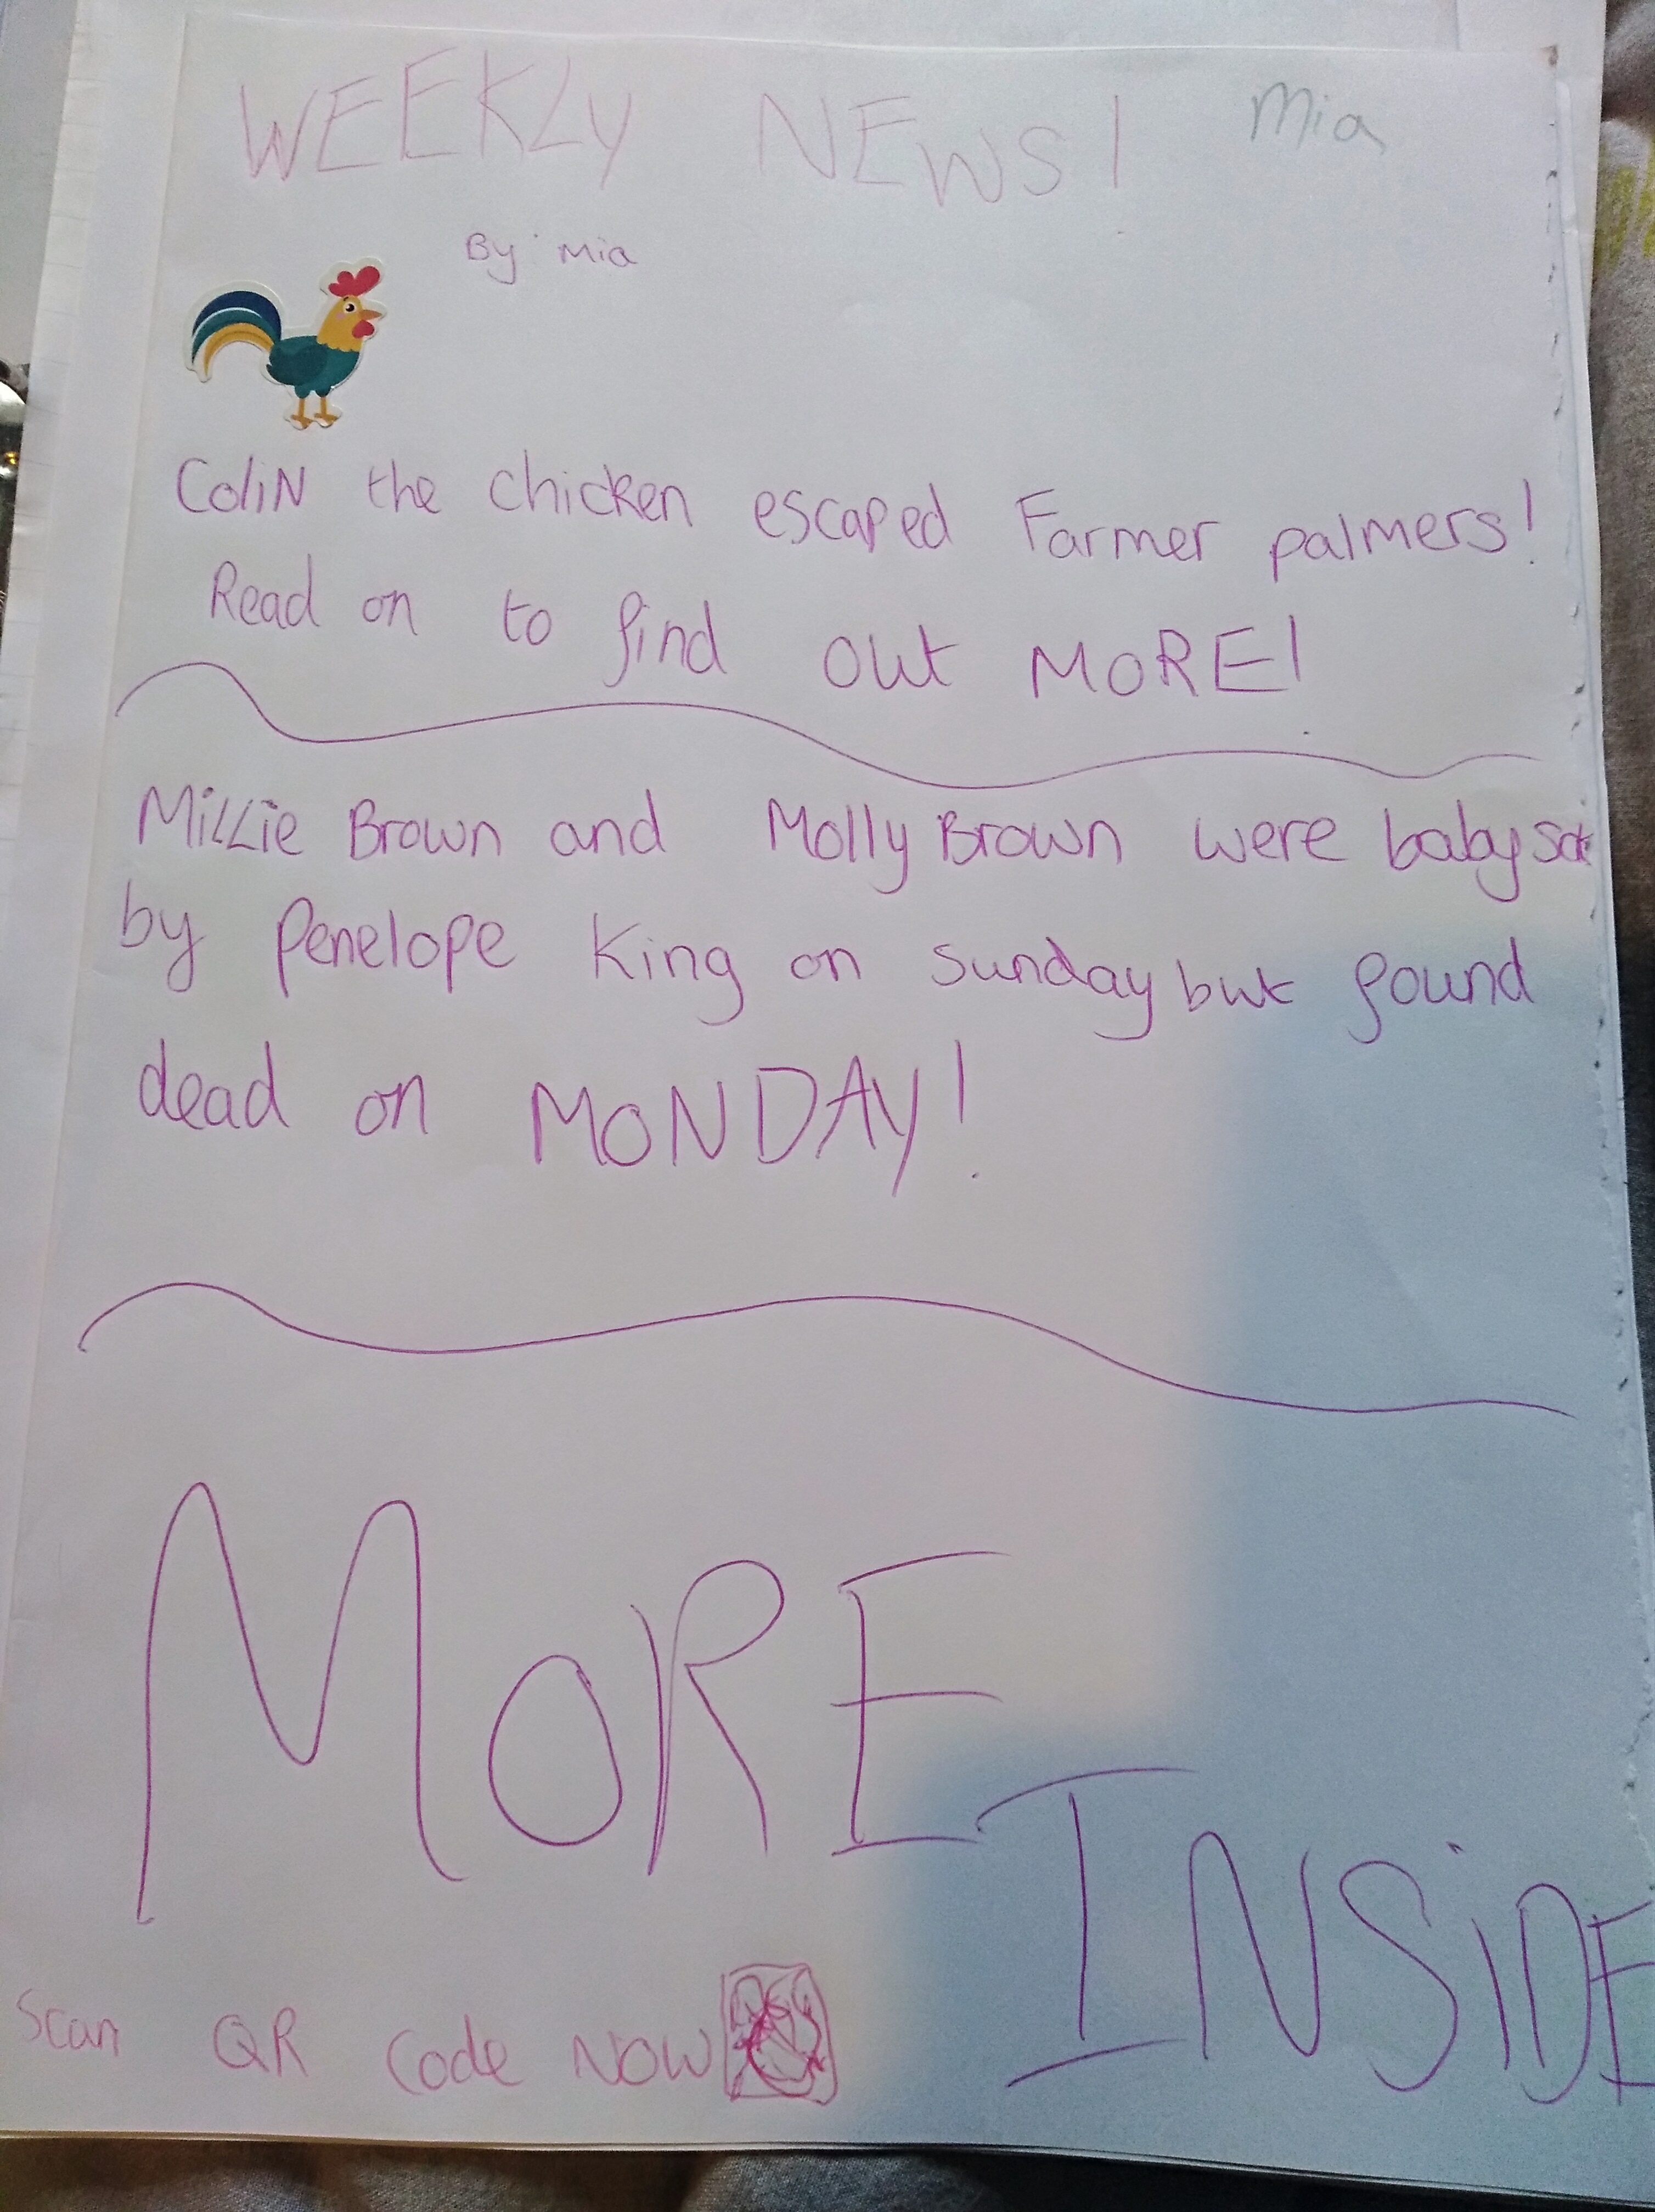 WEEKLY NEWS! Mia
By Mia
ColiN the chicken escaped Farmer palmers!
Read on to find out MORE!
MiLLie Brown and Molly Brown were babysat
by Penelope King on Sunday but found
dead on MONDAY!
MORE
INSiDE
Scan QR Code NOW